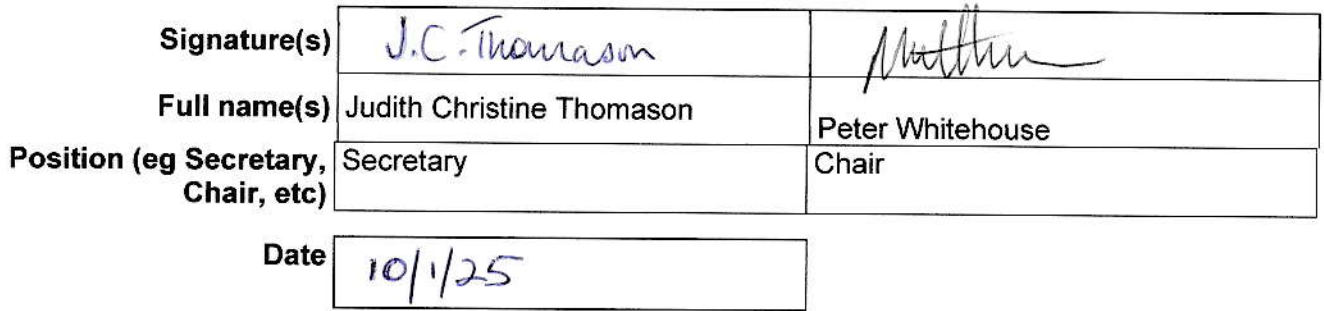 Signature(s) J.C. Thomason
Full name(s) Judith Christine Thomason Peter Whitehouse
Position (eg Secretary, Secretary Chair
Chair, etc)
Date 10/1/25